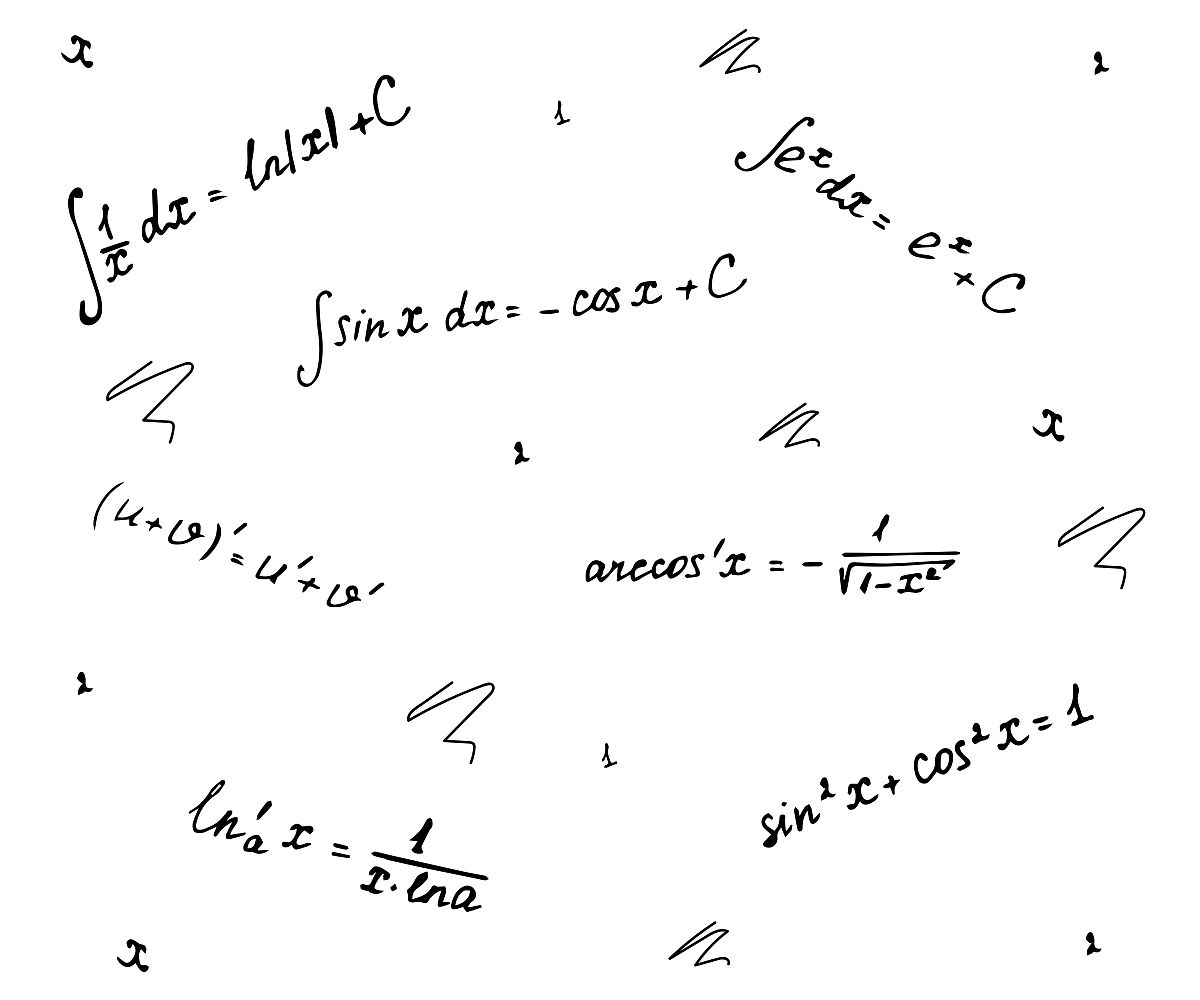 x
2
∫ 1/x dx = ln|x| + C
1
∫eˣ dx = eˣ + C
∫ sin x dx = - cos x + C
x
2
(u + v)' = u' + v'
arccos'x = - 1/√(1-x²)
2
1
sin² x + cos² x = 1
ln'ₐ x = 1/(x · ln a)
x
2